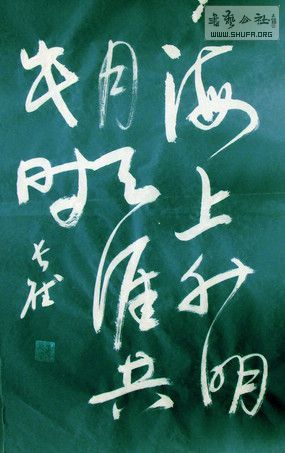 書藝公社
WWW.SHUFA.ORG
海上升明
月天涯共
此时